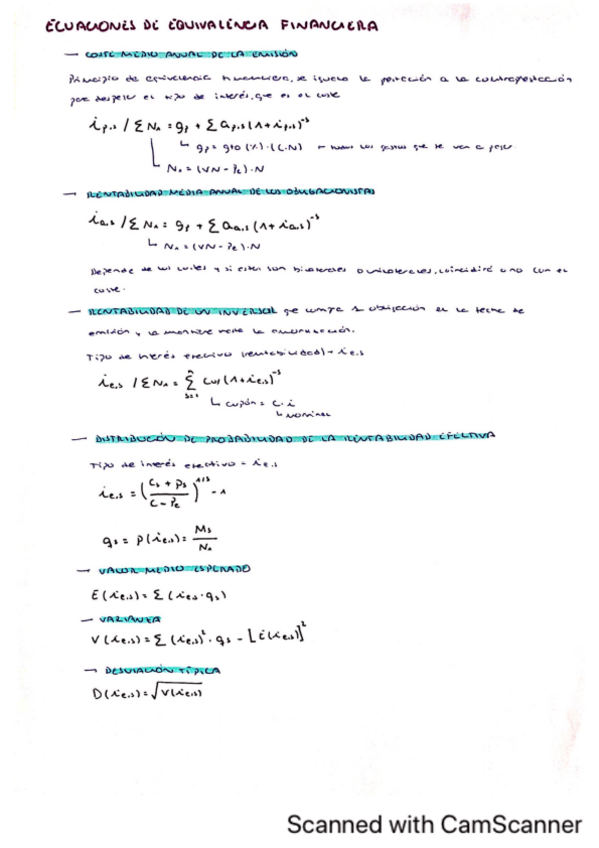 ECUACIONES DE EQUIVALENCIA FINANCIERA
— COSTE MEDIO ANUAL DE LA EMISIÓN
Principio de equivalencia financiera, se iguala la prestación a la contraprestación
para despejar el tipo de interés, que es el coste
i p,s / Σ N₁ = gp + Σ a p,s (1+i p,s)⁻ˢ
gp = gto (%) · (C·N) → todos los gastos que se van a pagar
N₁ = (VN - Pe) · N
— RENTABILIDAD MEDIA ANUAL DE LOS OBLIGACIONISTAS
i a,s / Σ N₁ = gp + Σ a a,s (1+i a,s)⁻ˢ
N₁ = (VN - Pe) · N
Depende de los costes y si estos son bilaterales o unilaterales, coincidirá o no con el
coste.
— RENTABILIDAD DE UN INVERSOR que compra 1 obligación en la fecha de
emisión y la mantiene hasta la amortización.
Tipo de interés efectivo (rentabilidad) - i e,s
i e,s / Σ N₁ = Σ Cus (1+i e,s)⁻ˢ
s=1
cupón = C · i
nominal
— DISTRIBUCIÓN DE PROBABILIDAD DE LA RENTABILIDAD EFECTIVA
Tipo de interés efectivo - i e,s
i e,s = ((Cs + Ps) / (C - Pe))^1/s - 1
qs = P(i e,s) = Ms / N₁
— VALOR MEDIO ESPERADO
E(i e,s) = Σ (i e,s · qs)
— VARIANZA
V(i e,s) = Σ (i e,s)² · qs - [E(i e,s)]²
— DESVIACIÓN TÍPICA
D(i e,s) = √V(i e,s)
Scanned with CamScanner